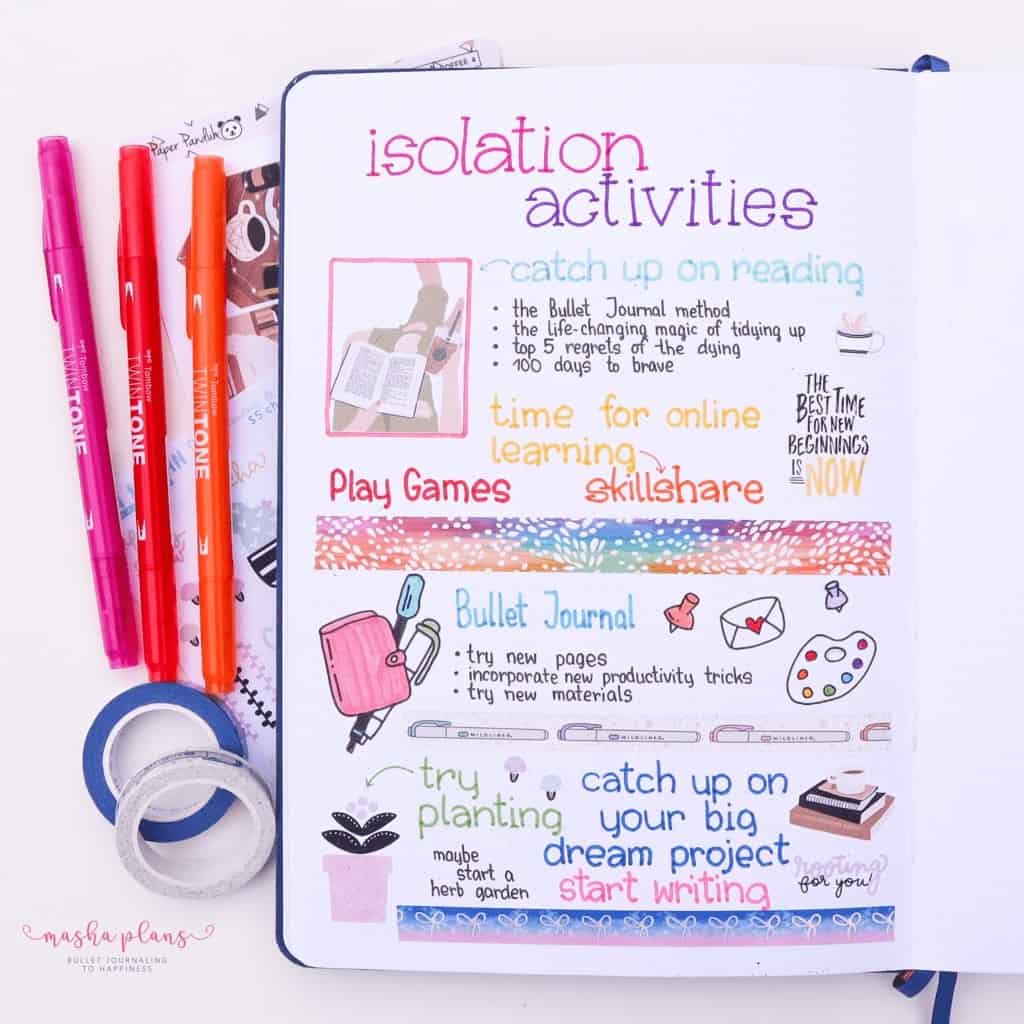 COFFEE
Paper Panduh
isolation
activities
catch up on reading
• the Bullet Journal method
• the life-changing magic of tidying up
• top 5 regrets of the dying
• 100 days to brave
THE
BEST TIME
FOR NEW
BEGINNINGS
IS NOW
time for online
learning
Play Games
skillshare
Tombow
TWINTONE
Tombow
TWINTONE
Tombow
TWINTONE
Bullet Journal
• try new pages
• incorporate new productivity tricks
• try new materials
MILDLINER
MILDLINER
MILDLINER
try
planting
maybe
start a
herb garden
catch up on
your big
dream project
start writing
rooting
for you!
masha plans
BULLET JOURNALING
TO HAPPINESS